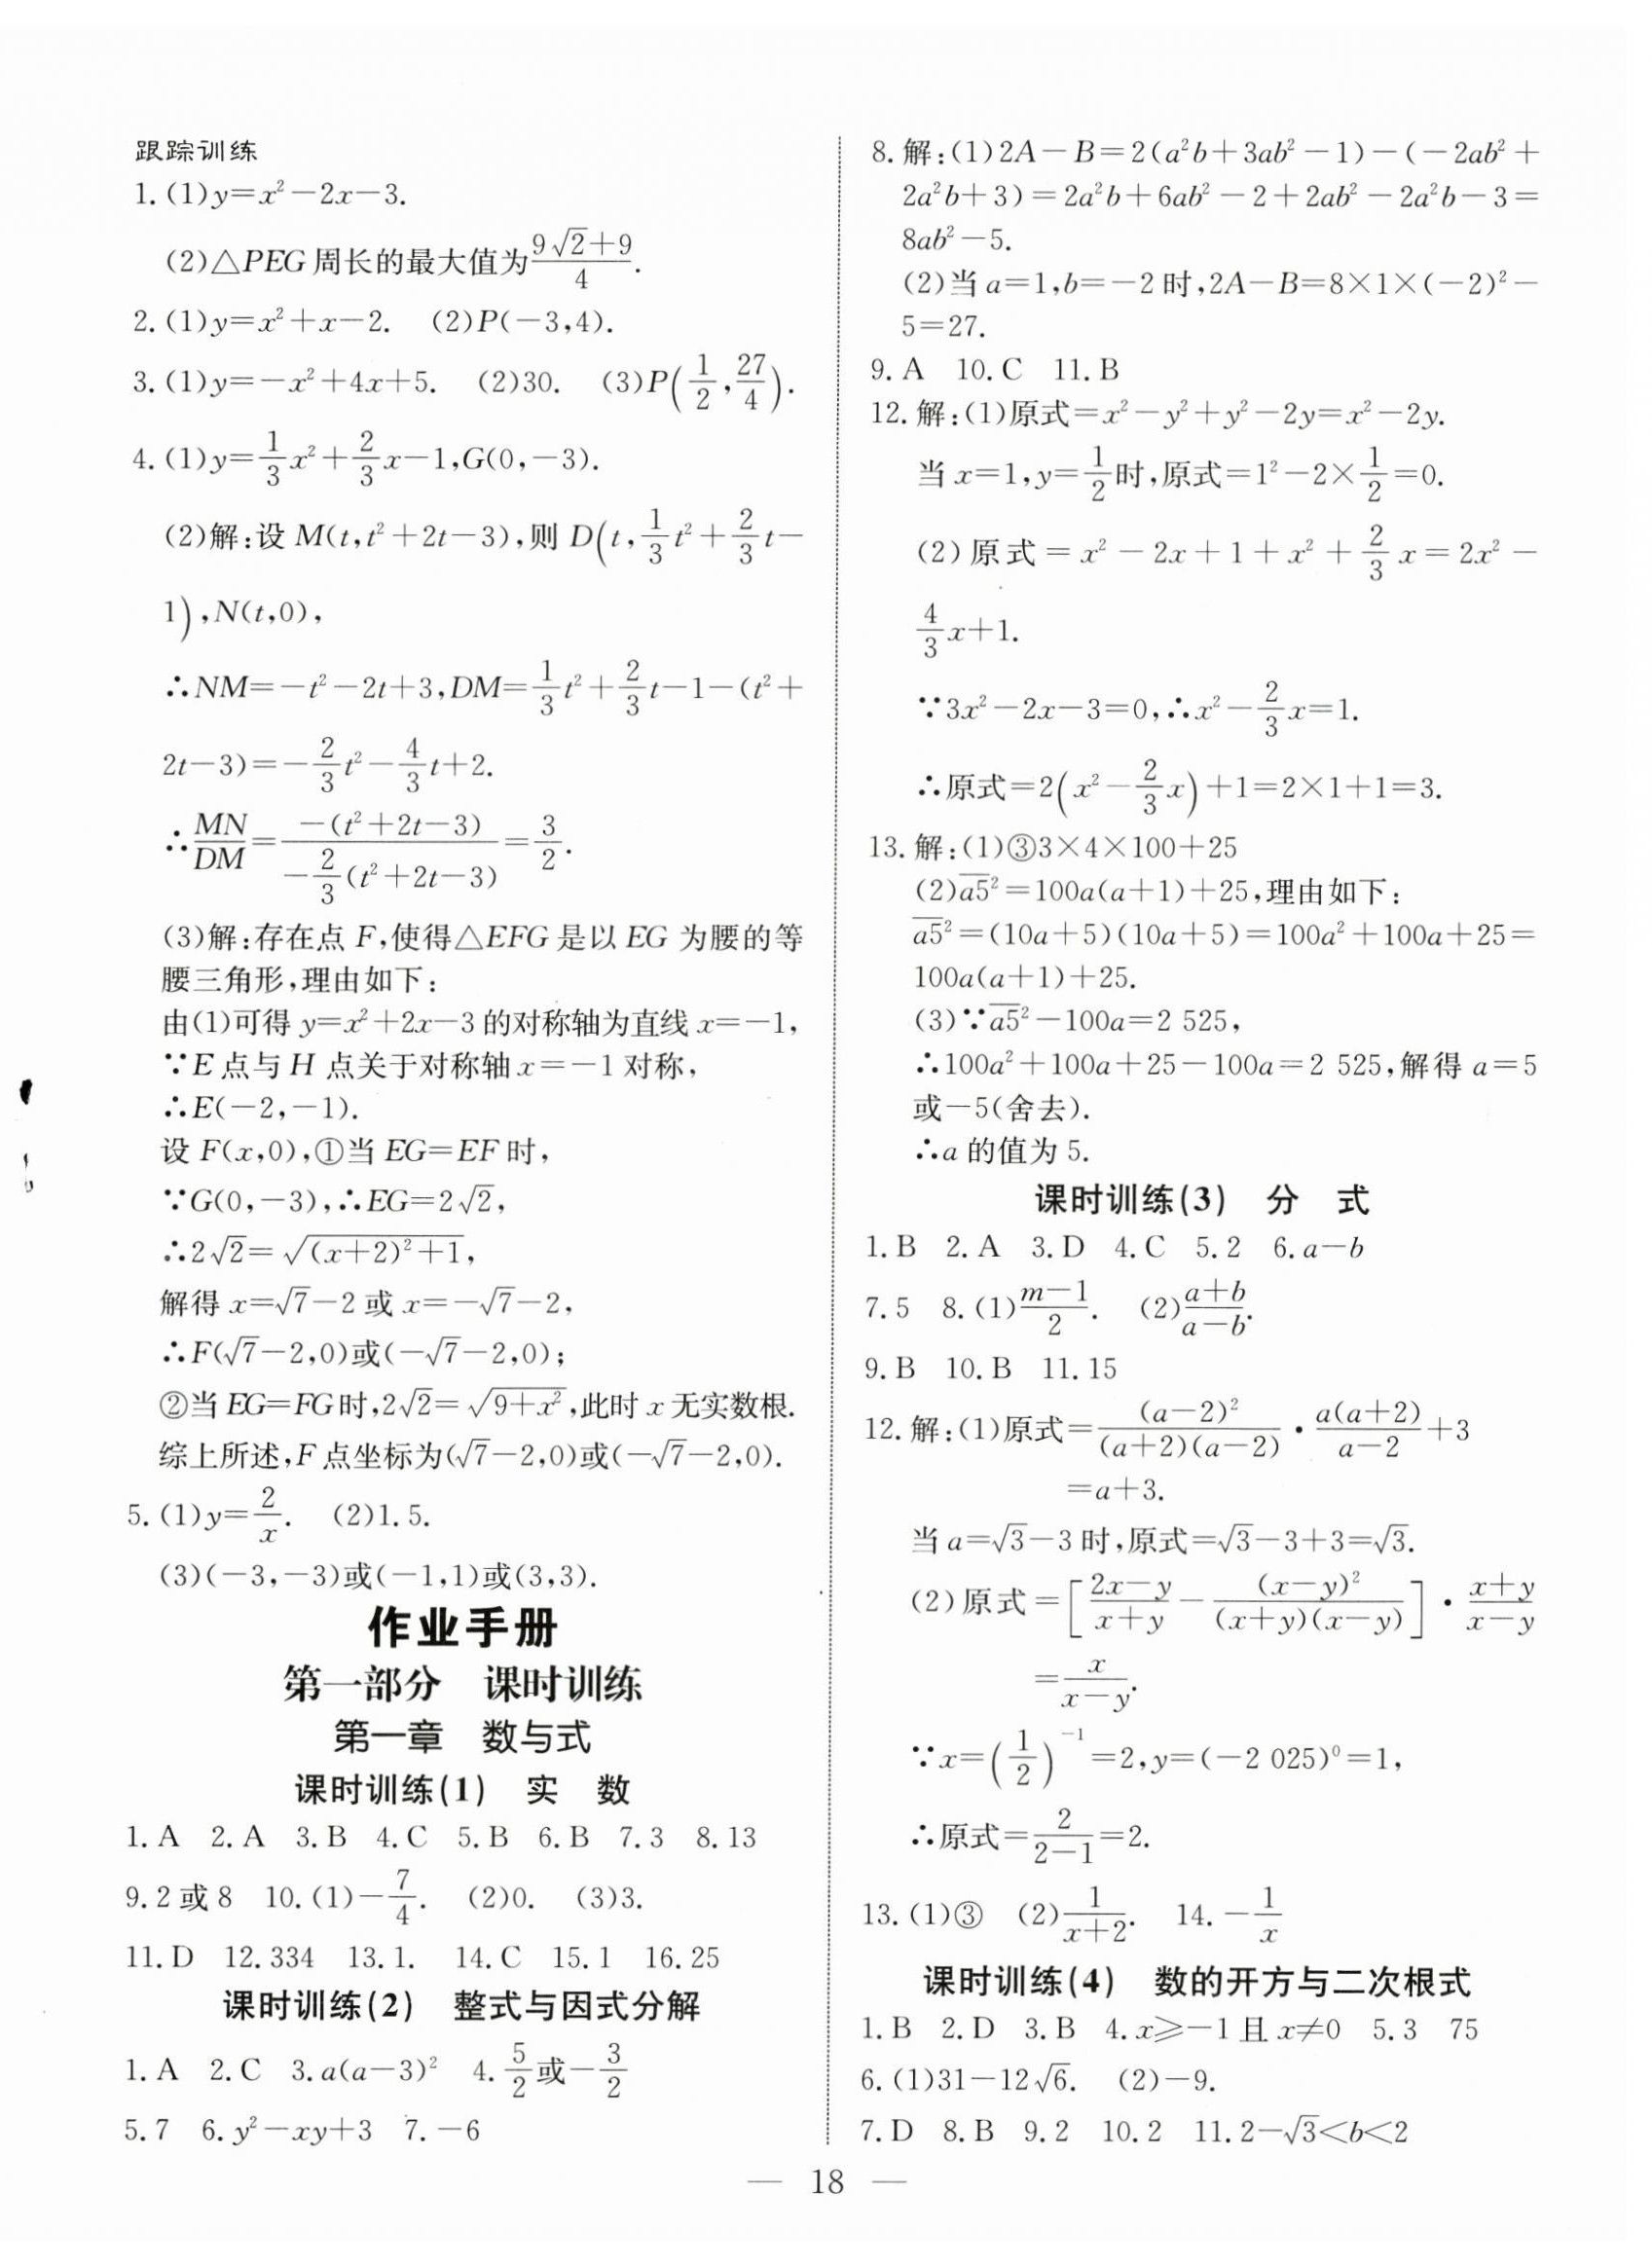 跟踪训练
1.(1)y=x²-2x-3.
(2)△PEG周长的最大值为(9√2+9)/4.
2.(1)y=x²+x-2. (2)P(-3,4).
3.(1)y=-x²+4x+5. (2)30. (3)P(1/2,27/4).
4.(1)y=1/3x²+2/3x-1,G(0,-3).
(2)解:设M(t,t²+2t-3),则D(t,1/3t²+2/3t-
1),N(t,0),
∴NM=-t²-2t+3,DM=1/3t²+2/3t-1-(t²+
2t-3)=-2/3t²-4/3t+2.
∴MN/DM=-(t²+2t-3)/(-2/3(t²+2t-3))=3/2.
(3)解:存在点F,使得△EFG是以EG为腰的等
腰三角形,理由如下:
由(1)可得y=x²+2x-3的对称轴为直线x=-1,
∵E点与H点关于对称轴x=-1对称,
∴E(-2,-1).
设F(x,0),①当EG=EF时,
∵G(0,-3),∴EG=2√2,
∴2√2=√((x+2)²+1),
解得x=√7-2或x=-√7-2,
∴F(√7-2,0)或(-√7-2,0);
②当EG=FG时,2√2=√(9+x²),此时x无实数根.
综上所述,F点坐标为(√7-2,0)或(-√7-2,0).
5.(1)y=2/x. (2)1.5.
(3)(-3,-3)或(-1,1)或(3,3).
作业手册
第一部分 课时训练
第一章 数与式
课时训练(1) 实 数
1.A 2.A 3.B 4.C 5.B 6.B 7.3 8.13
9.2或8 10.(1)-7/4. (2)0. (3)3.
11.D 12.334 13.1. 14.C 15.1 16.25
课时训练(2) 整式与因式分解
1.A 2.C 3.a(a-3)² 4.5/2或-3/2
5.7 6.y²-xy+3 7.-6
8.解:(1)2A-B=2(a²b+3ab²-1)-(-2ab²+
2a²b+3)=2a²b+6ab²-2+2ab²-2a²b-3=
8ab²-5.
(2)当a=1,b=-2时,2A-B=8×1×(-2)²-
5=27.
9.A 10.C 11.B
12.解:(1)原式=x²-y²+y²-2y=x²-2y.
当x=1,y=1/2时,原式=1²-2×1/2=0.
(2)原式=x²-2x+1+x²+2/3x=2x²-
4/3x+1.
∵3x²-2x-3=0,∴x²-2/3x=1.
∴原式=2(x²-2/3x)+1=2×1+1=3.
13.解:(1)③3×4×100+25
(2)a̅5̅²=100a(a+1)+25,理由如下:
a̅5̅²=(10a+5)(10a+5)=100a²+100a+25=
100a(a+1)+25.
(3)∵a̅5̅²-100a=2 525,
∴100a²+100a+25-100a=2 525,解得a=5
或-5(舍去).
∴a的值为5.
课时训练(3) 分 式
1.B 2.A 3.D 4.C 5.2 6.a-b
7.5 8.(1)(m-1)/2. (2)(a+b)/(a-b).
9.B 10.B 11.15
12.解:(1)原式=(a-2)²/((a+2)(a-2))·a(a+2)/(a-2)+3
=a+3.
当a=√3-3时,原式=√3-3+3=√3.
(2)原式=[(2x-y)/(x+y)-(x-y)²/((x+y)(x-y))]·(x+y)/(x-y)
=x/(x-y).
∵x=(1/2)⁻¹=2,y=(-2 025)⁰=1,
∴原式=2/(2-1)=2.
13.(1)③ (2)1/(x+2). 14.-1/x
课时训练(4) 数的开方与二次根式
1.B 2.D 3.B 4.x⩾-1且x≠0 5.3 75
6.(1)31-12√6. (2)-9.
7.D 8.B 9.2 10.2 11.2-√3<b<2
— 18 —